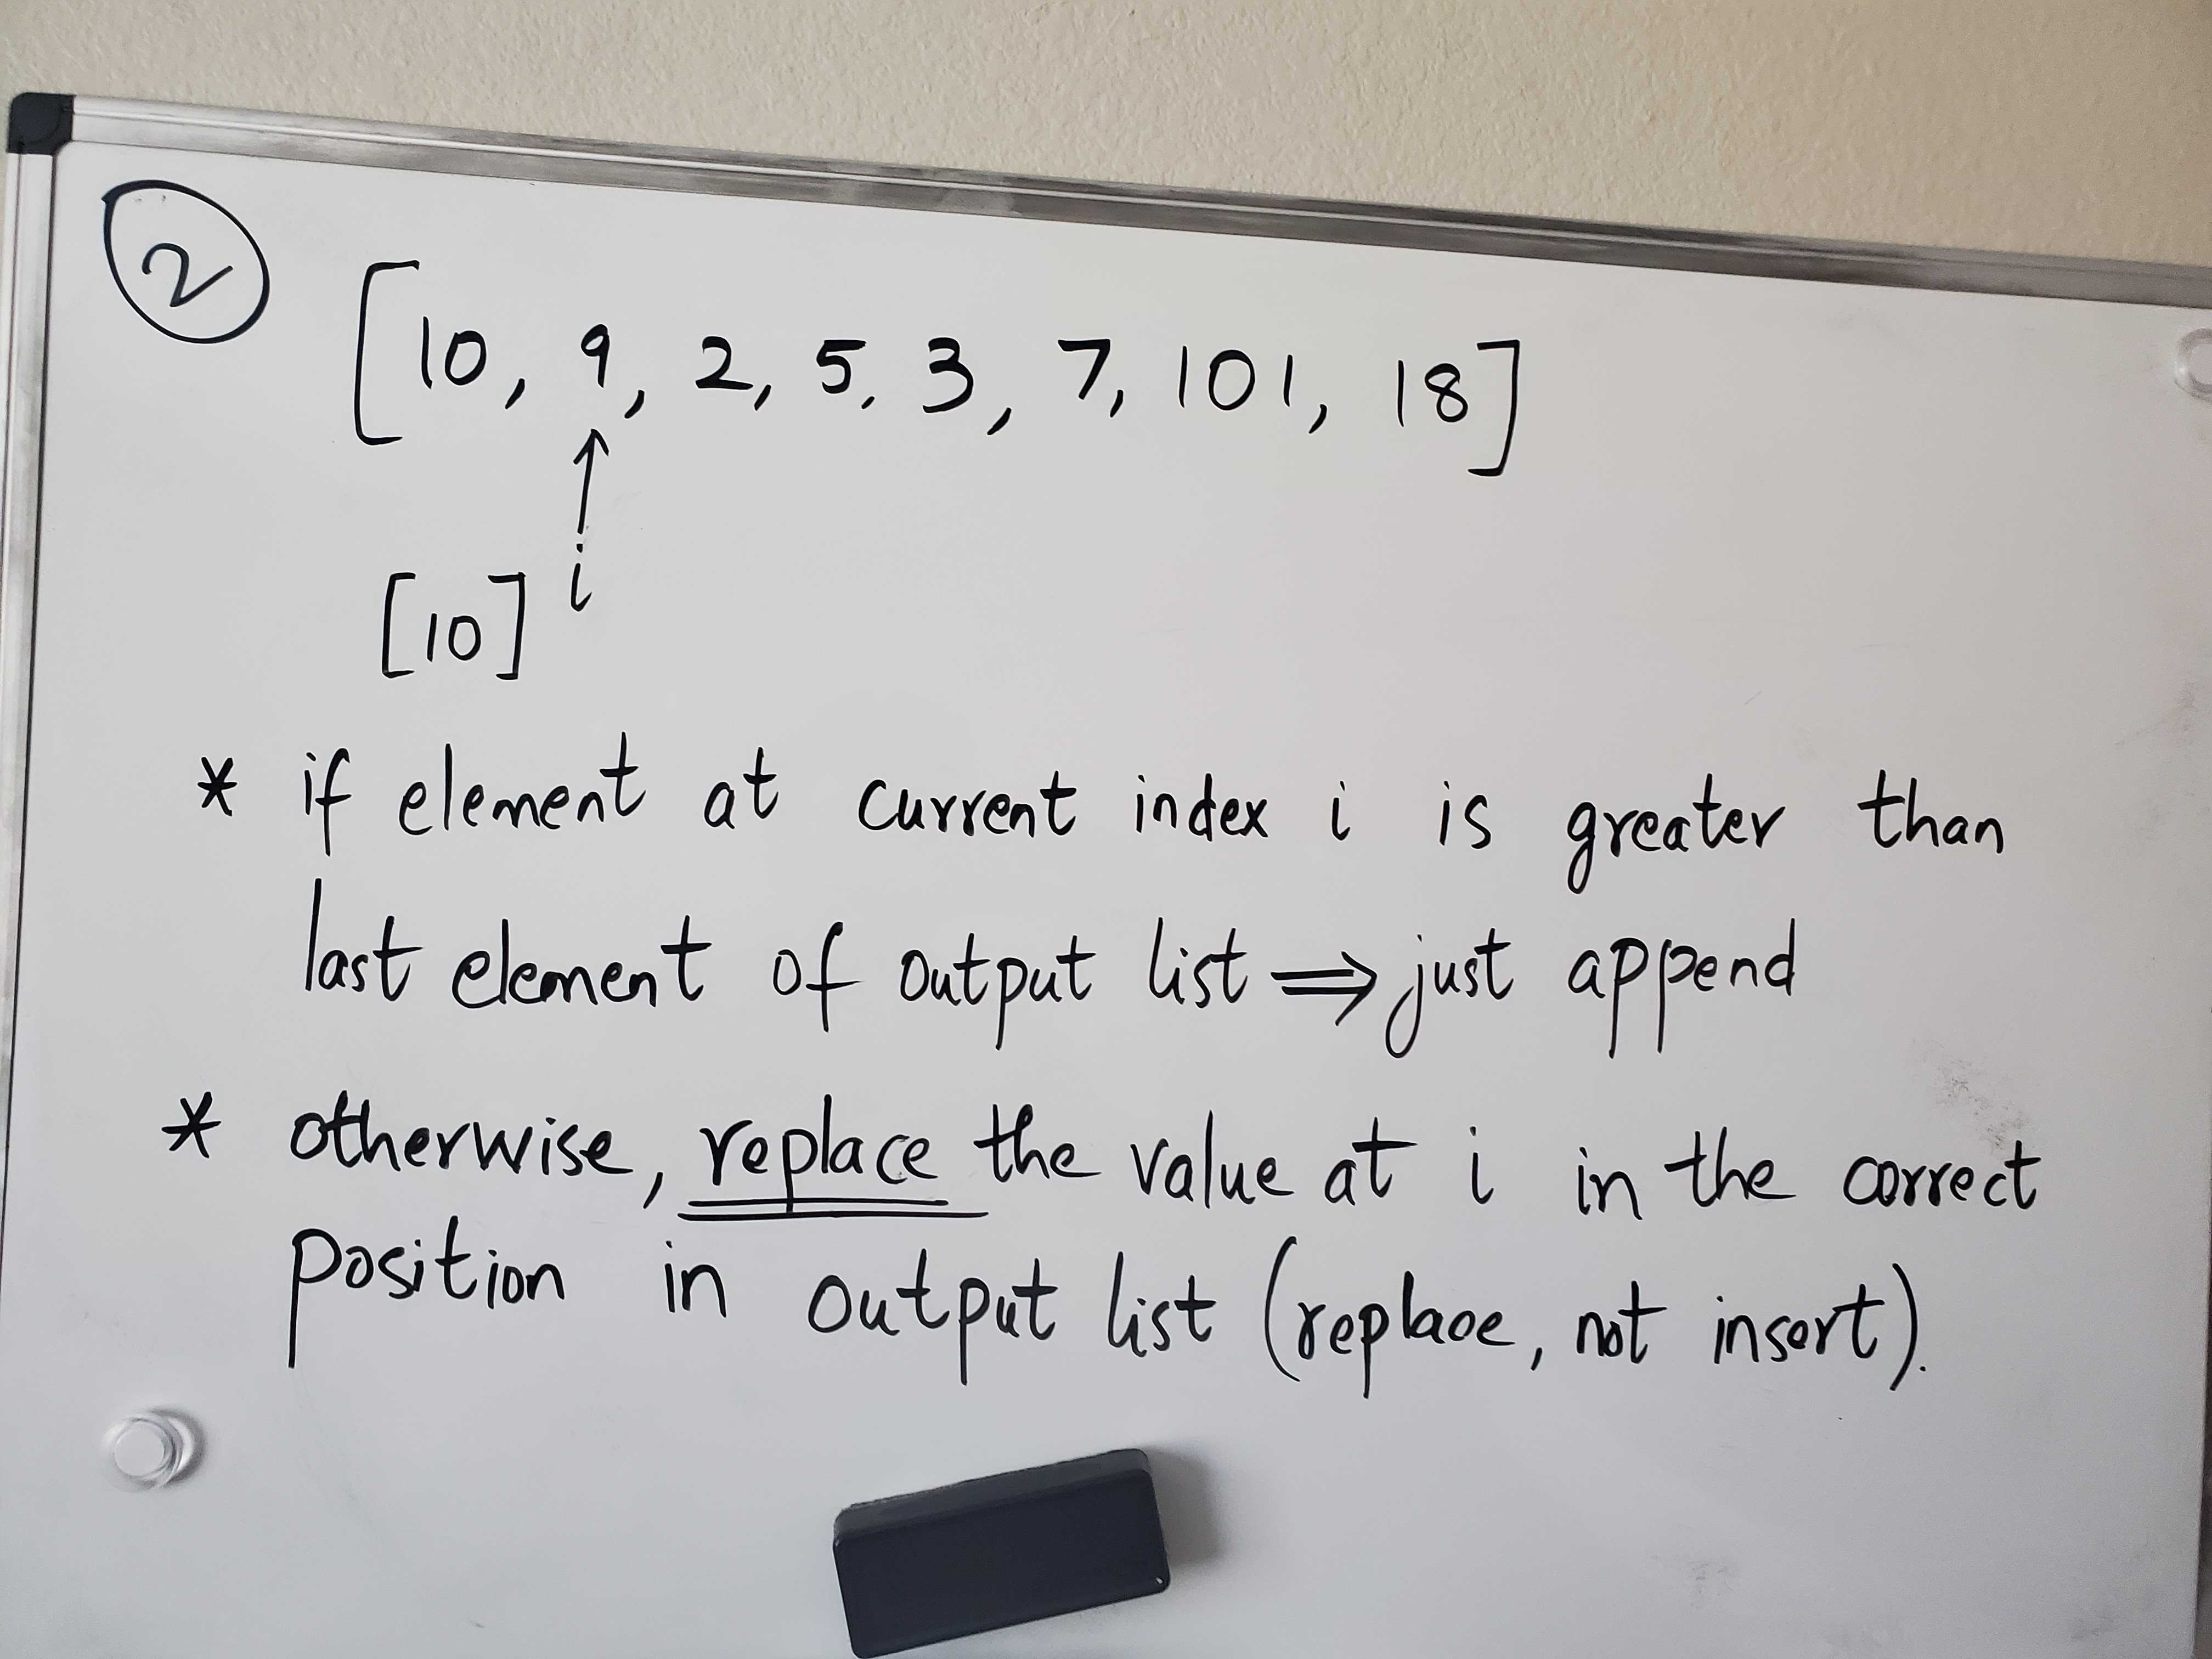 2
[10, 9, 2, 5, 3, 7, 101, 18]
i
[10]
* if element at current index i is greater than
last element of output list ⟹ just append
* otherwise, replace the value at i in the correct
position in output list (replace, not insert).